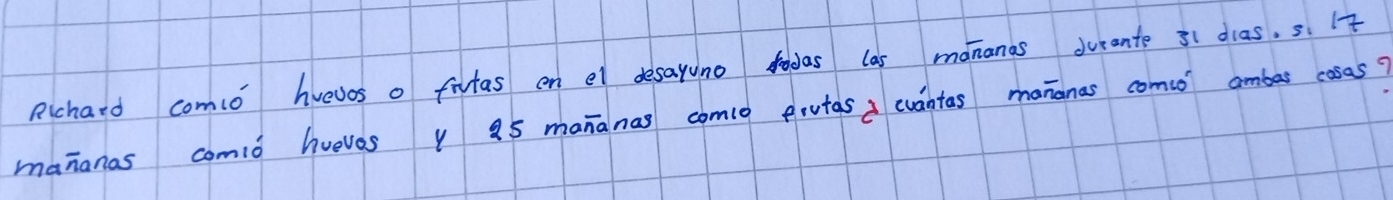 Richard comió huevos o frutas en el desayuno todas las mañanas durante 31 dias. si 17
mañanas comió huevos y 25 mañanas comio frutas ¿ cuántas mañanas comió ambas cosas?